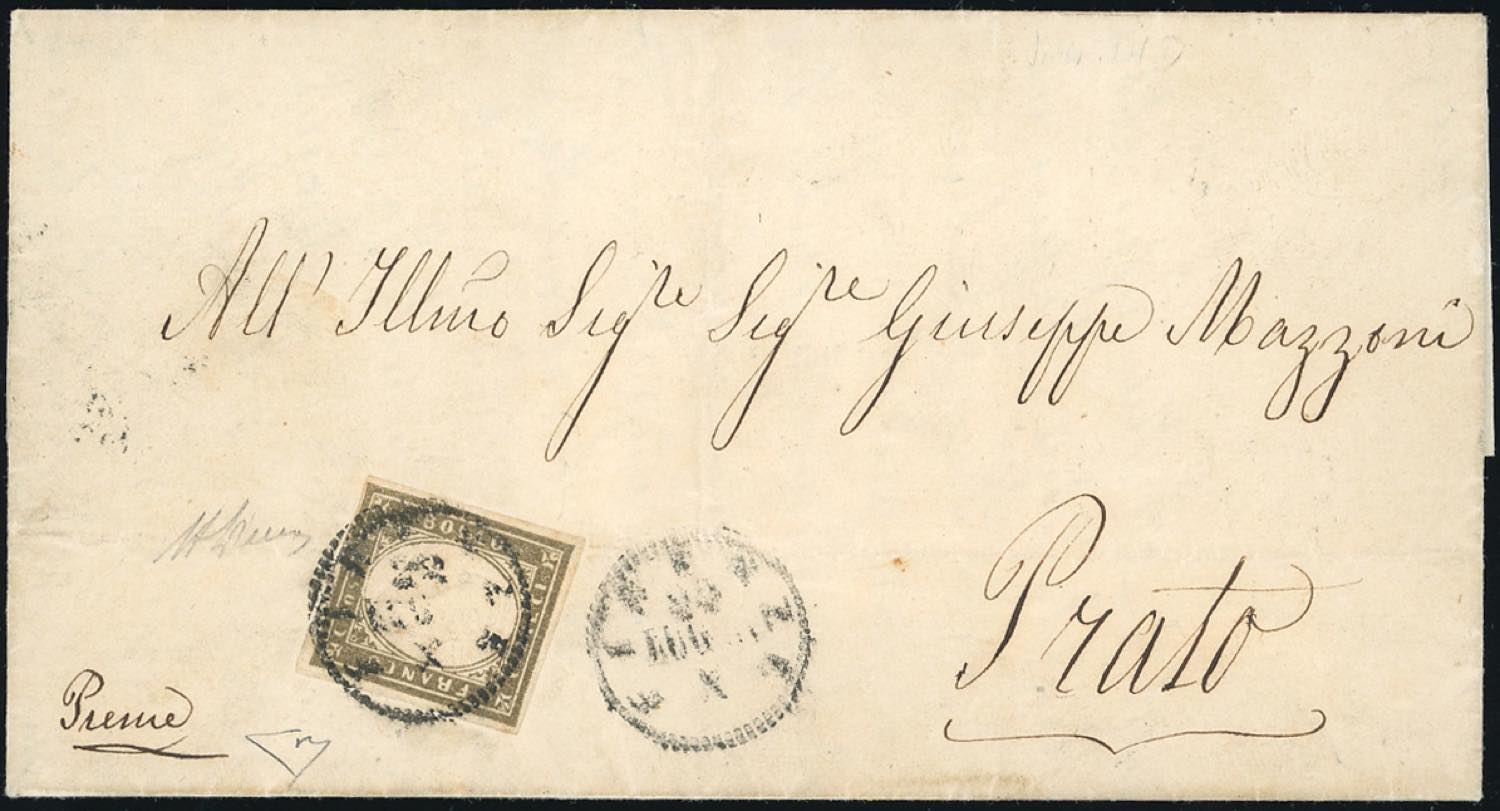 All' Illmo Sigre Sigre Giuseppe Mazzoni
Prato
Preme
FRANCO BOLLO
FIRENZE
LUG